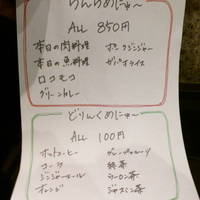 らんちめにゅ〜
ALL 850円
本日の肉料理
本日の魚料理
ロコモコ
グリーンカレー
ポークジンジャー
ガパオライス
どりんくめにゅ〜
ALL 100円
ホットコーヒー
コーラ
ジンジャーエール
オレンジ
グレープフルーツ
緑茶
ウーロン茶
ジャスミン茶